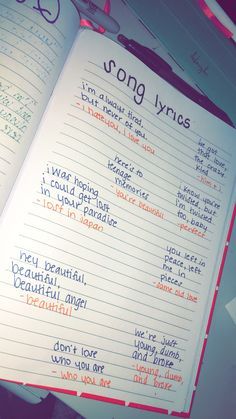 song lyrics
i'm always tired,
but never of you.
- i hate you, i love you
we got
that love,
the crazy
kind
here's to
teenage
memories
- you're beautiful
i know you're
twisted, but
i'm twisted
too, baby
- perfect
i was hoping
i could get lost
in your paradise
- lost in japan
you left in
peace, left
me in
pieces
- same old love
hey beautiful,
beautiful,
beautiful, angel
- beautiful
we're just
young, dumb,
and broke
- young, dumb,
and broke
don't lose
who you are
- who you are